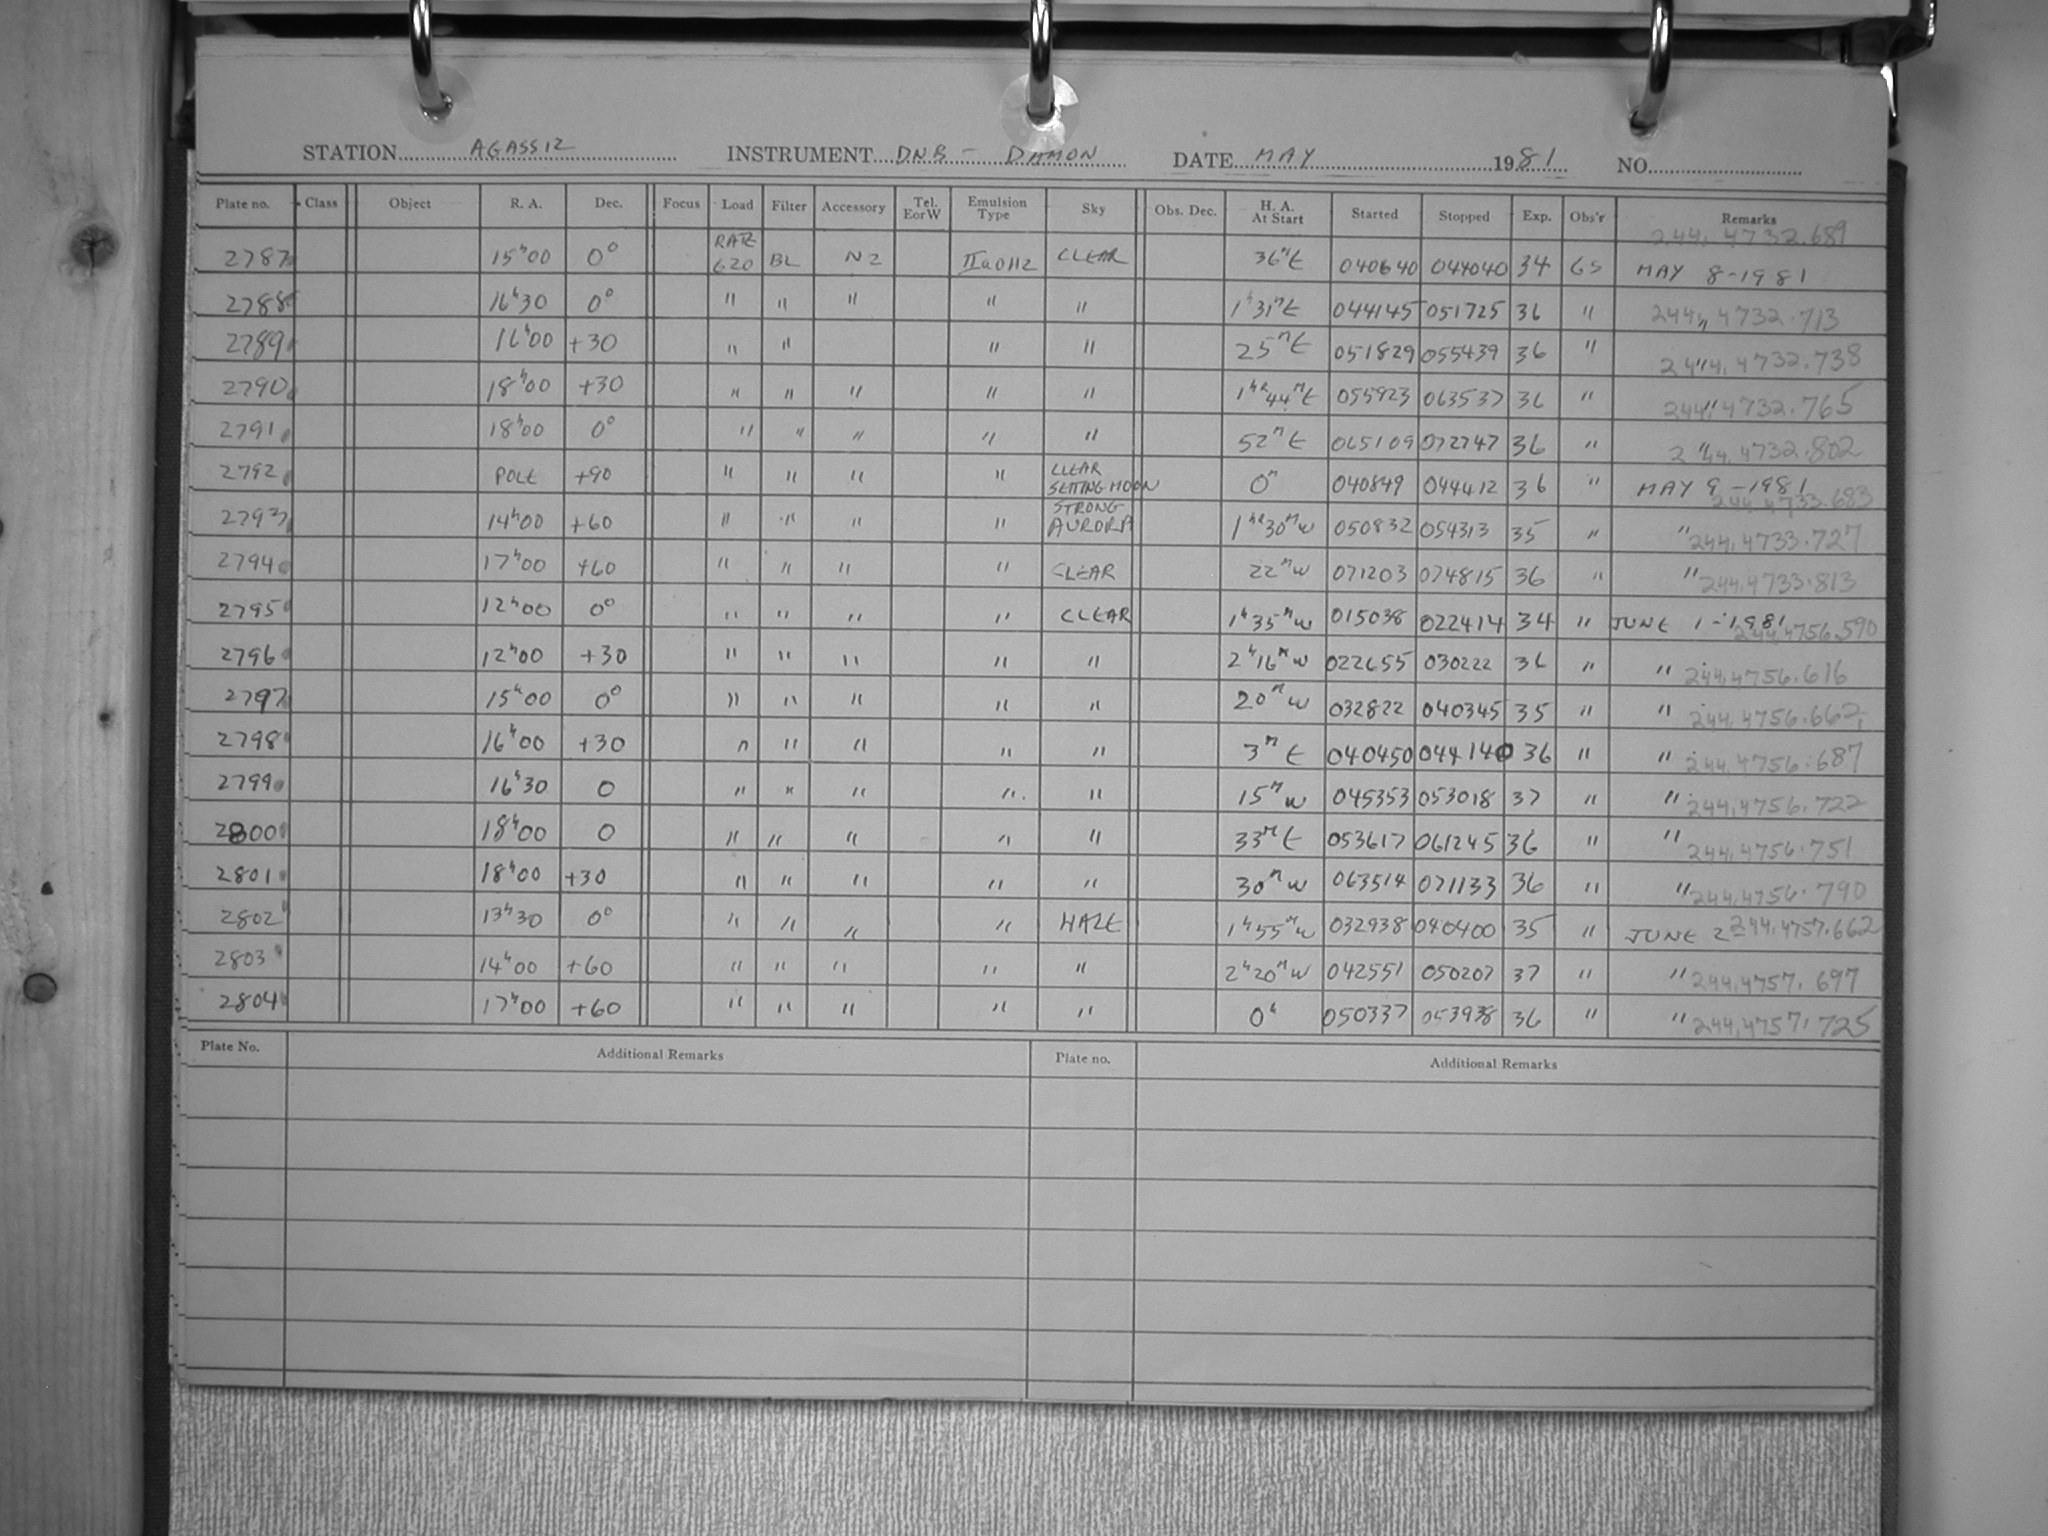 STATION AGASSIZ INSTRUMENT DNB - DAMON DATE MAY 1981 NO.
Plate no. Class Object R. A. Dec. Focus Load Filter Accessory Tel. E or W Emulsion Type Sky Obs. Dec. H. A. At Start Started Stopped Exp. Obs'r Remarks
2787 15h00 0° RATE 620 BL N2 IIaOH2 CLEAR 36mE 040640 044040 34 GS 244,4732.689 MAY 8-1981
2788 16h30 0° " " " " " 1h31mE 044145 051725 36 " " 244,4732.713
2789 16h00 +30 " " " " 25mE 051829 055439 36 " " 244,4732.738
2790 18h00 +30 " " " " " 1hr44mE 055923 063537 36 " " 244,4732.765
2791 18h00 0° " " " " " 52mE 065109 072747 36 " " 244,4732.802
2792 POLE +90 " " " " CLEAR SETTING MOON 0m 040849 044412 36 " MAY 9-1981 244,4733.683
2793 14h00 +60 " " " " STRONG AURORA 1hr30mW 050832 054313 35 " " 244,4733.727
2794 17h00 +60 " " " " CLEAR 22mW 071203 074815 36 " " 244,4733.813
2795 12h00 0° " " " " CLEAR 1h35mW 015038 022414 34 " JUNE 1-1981 244,4756.590
2796 12h00 +30 " " " " " 2h16mW 022655 030222 36 " " 244,4756.616
2797 15h00 0° " " " " " 20mW 032822 040345 35 " " 244,4756.662
2798 16h00 +30 " " " " " 3mE 040450 044140 36 " " 244,4756.687
2799 16h30 0 " " " " " 15mW 045353 053018 37 " " 244,4756.722
2800 18h00 0 " " " " " 33mE 053617 061245 36 " " 244,4756.751
2801 18h00 +30 " " " " " 30mW 063514 071133 36 " " 244,4756.790
2802 13h30 0° " " " " HAZE 1h55mW 032938 040400 35 " JUNE 2 244,4757.662
2803 14h00 +60 " " " " " 2h20mW 042551 050207 37 " " 244,4757.697
2804 17h00 +60 " " " " " 0h 050337 053938 36 " " 244,4757.725
Plate No. Additional Remarks Plate no. Additional Remarks